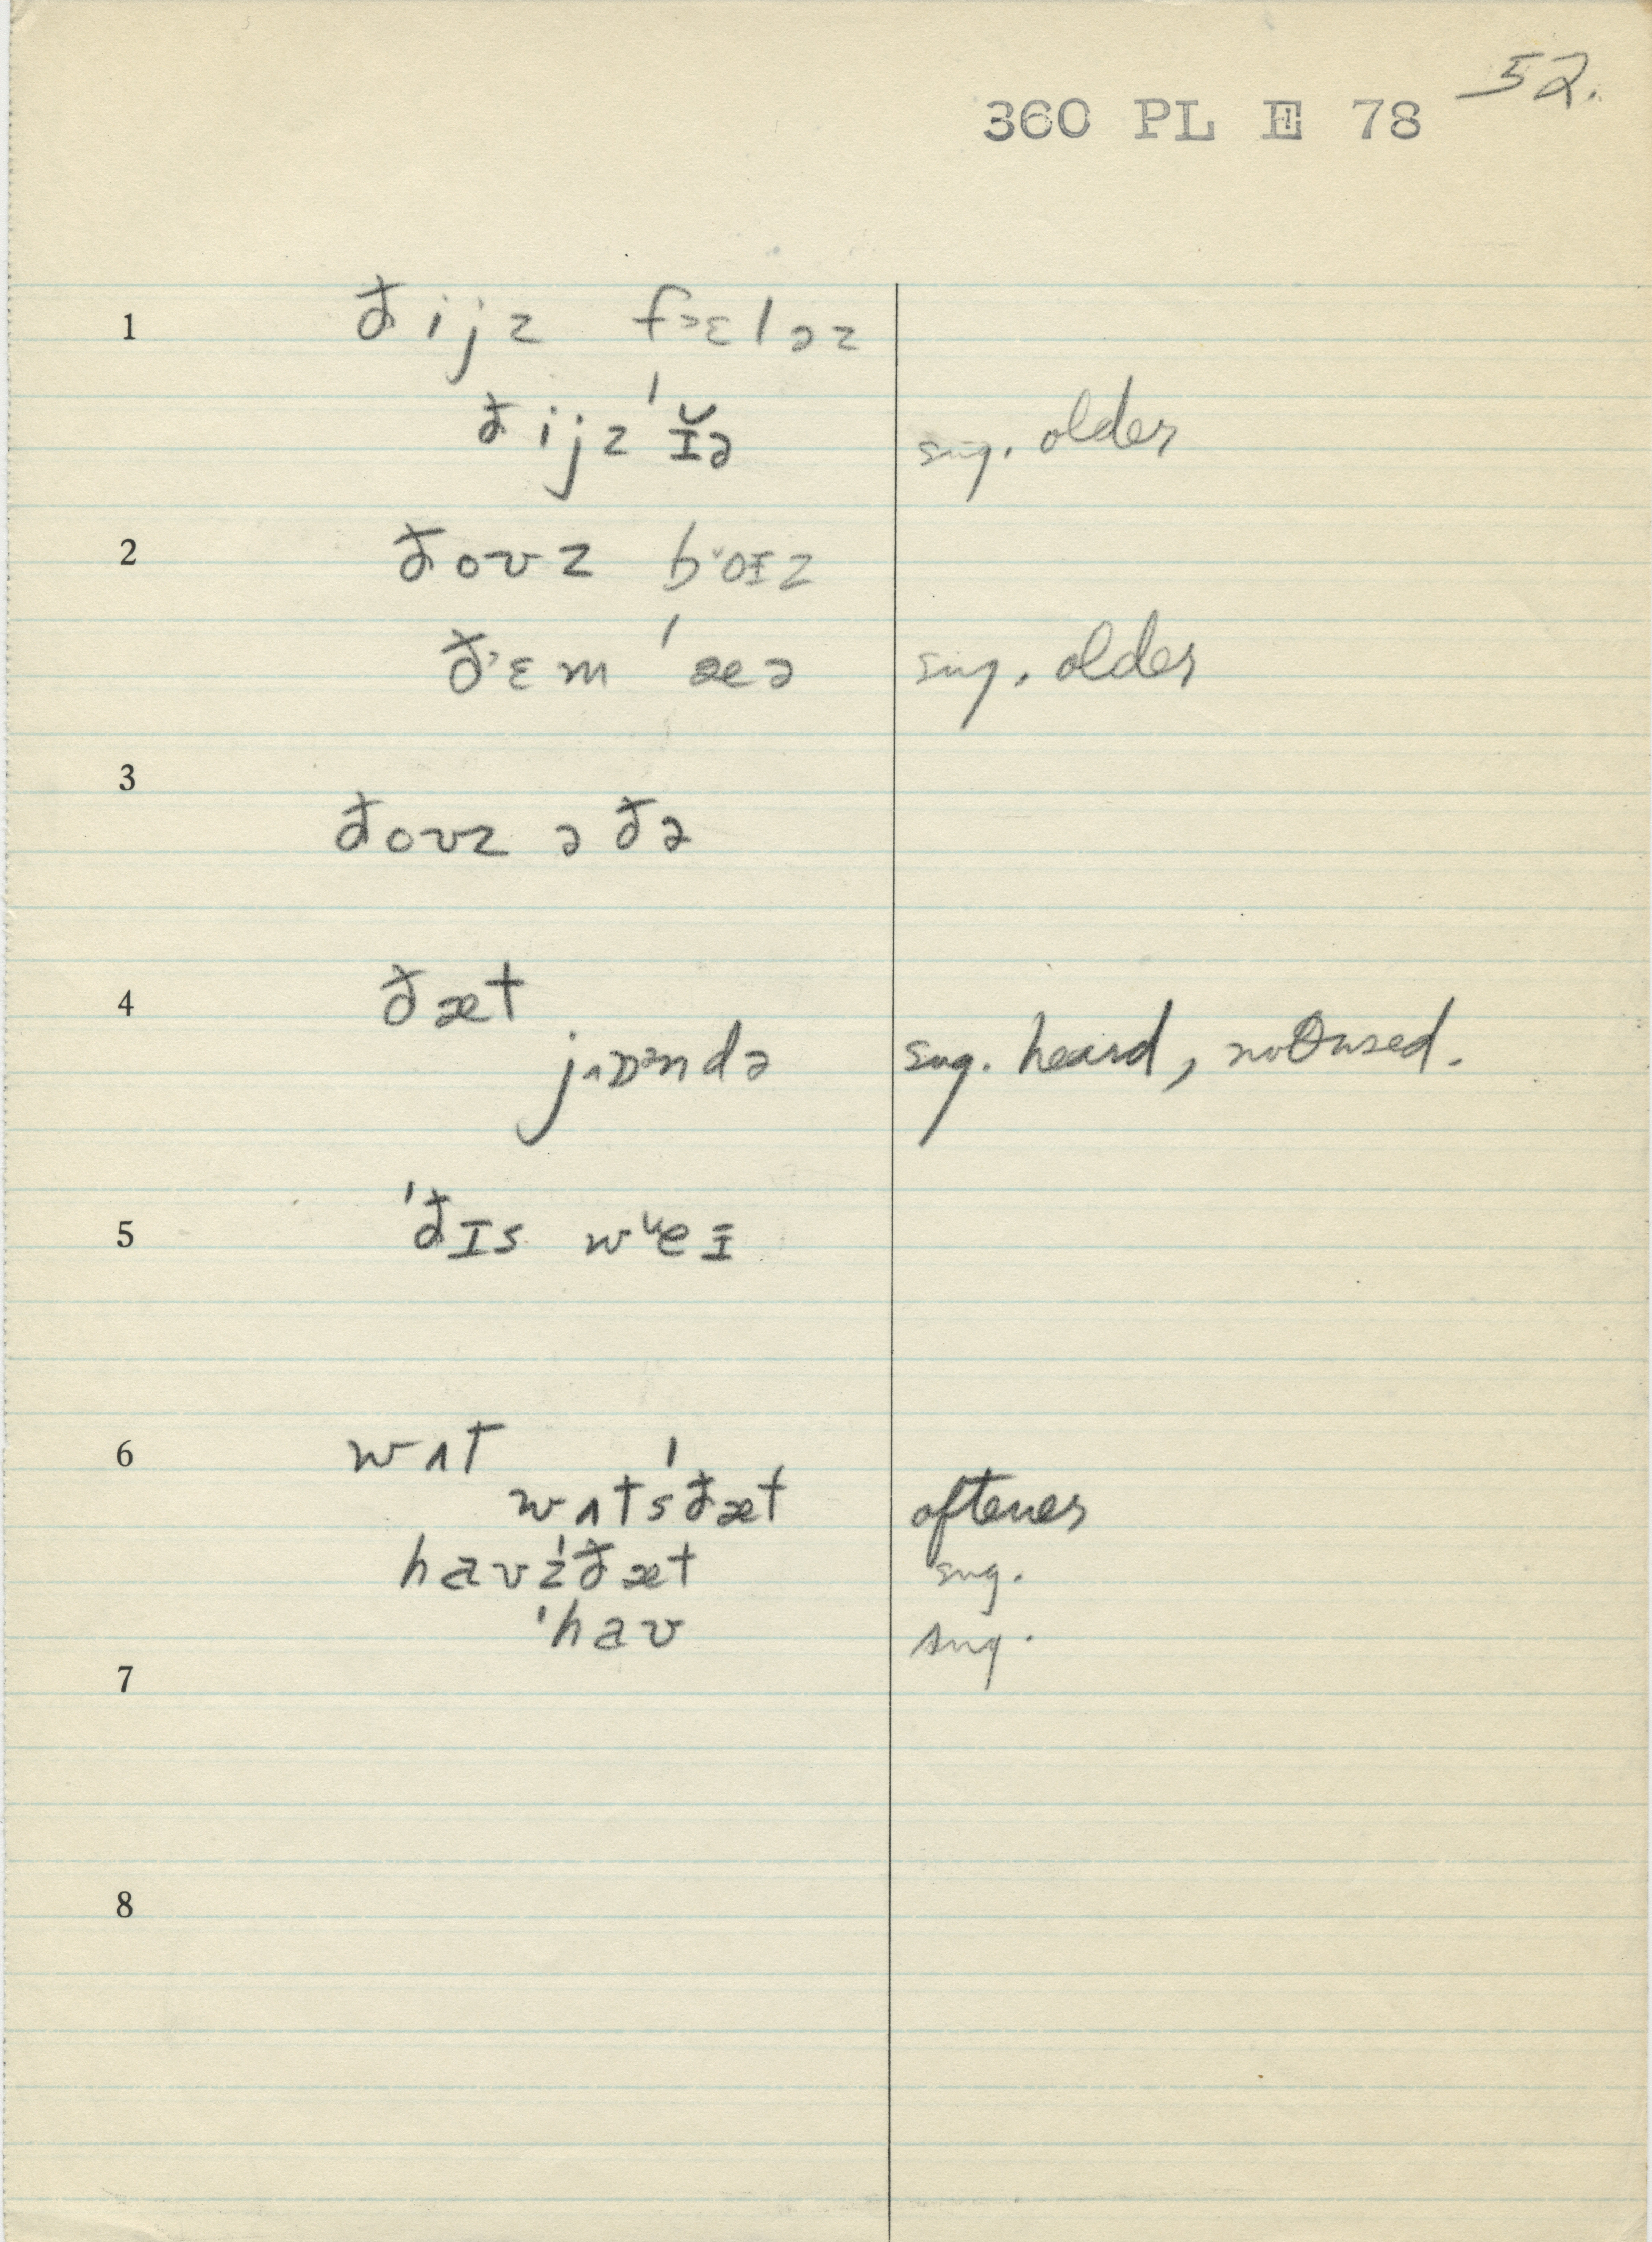 52.
360 PL E 78
1 ðijz f˃ɛləz
ðijz ˈɪ̆ə sug. older
2 ðoʊz b˅oɪz
ð˃ɛm ˈæə sug. older
3 ðoʊz ə ðə
4 ðæt
j˄ɒ˃ndə sug. heard, not used.
5 ˈðɪs w˅eɪ
6 wʌt
wʌtsˈðæt oftener
haʊzˈðæt sug.
ˈhaʊ sug.
7
8